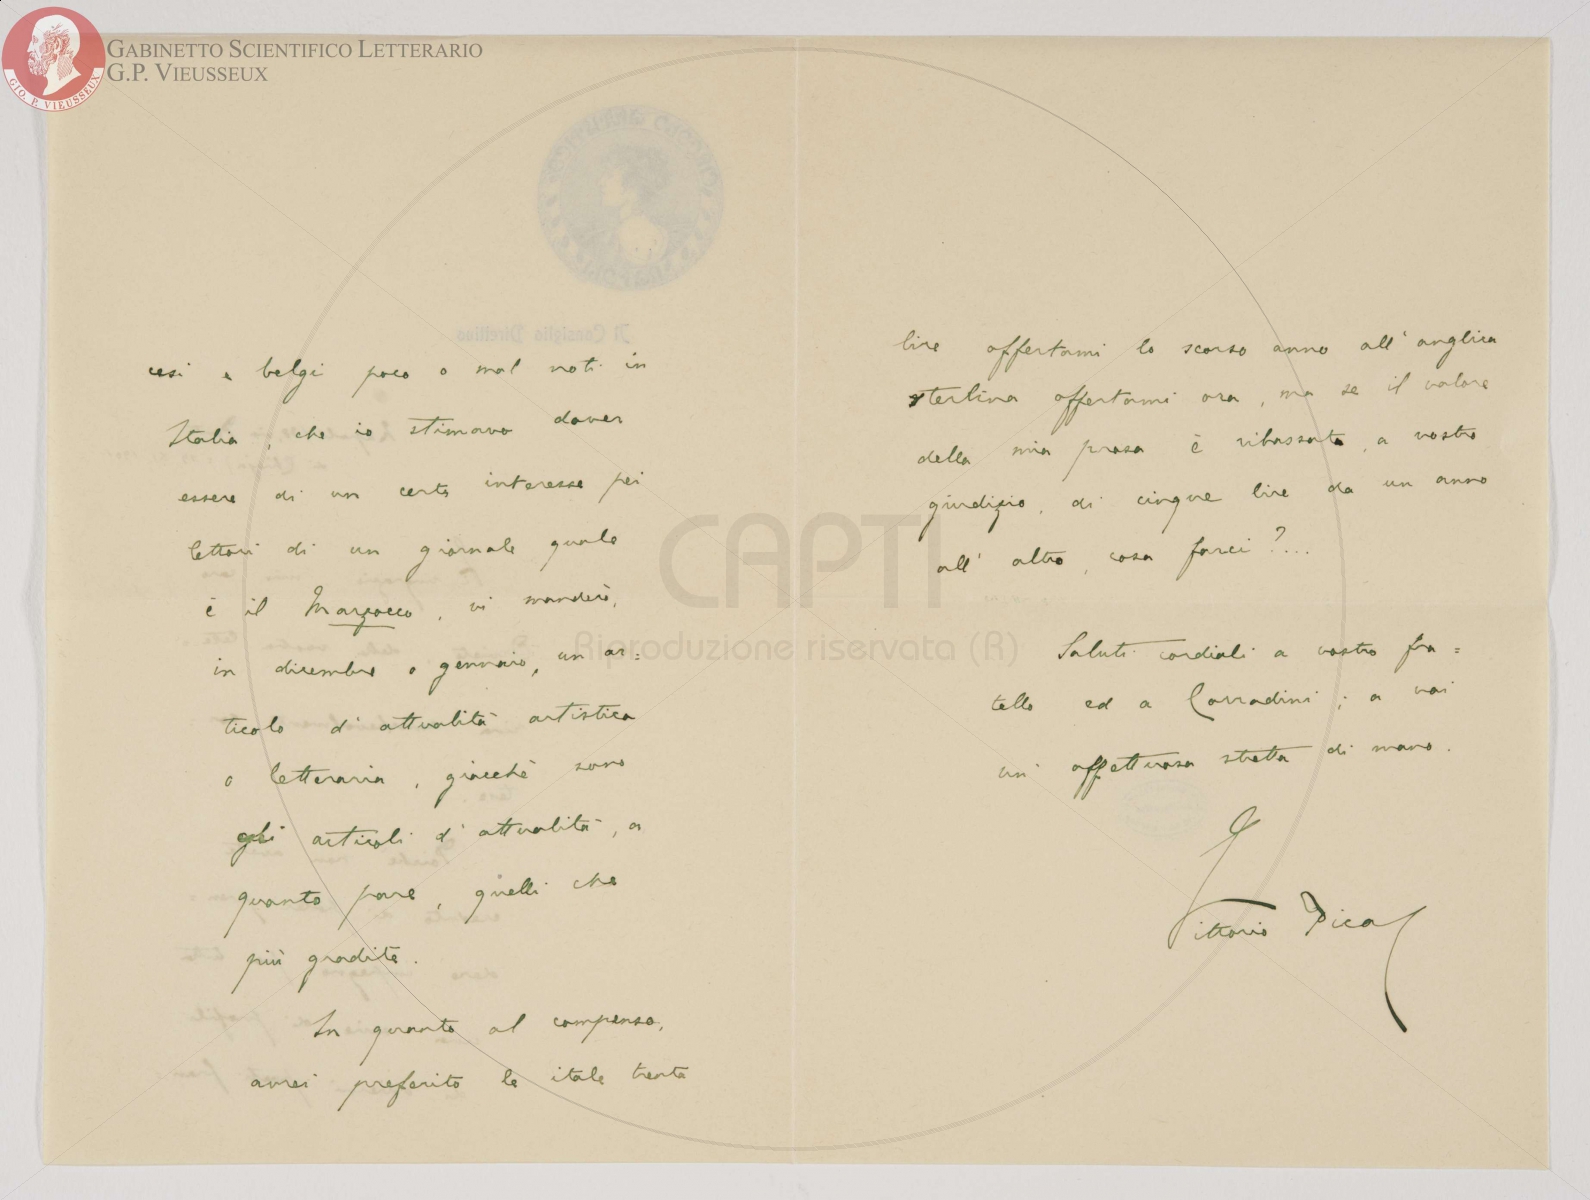 GABINETTO SCIENTIFICO LETTERARIO
G.P. VIEUSSEUX
GIO. P. VIEUSSEUX
Il Consiglio Direttivo
cesi e belgi poco o mal noti in
Italia, che io stimavo dover
essere di un certo interesse pei
lettori di un giornale quale
è il Marzocco, vi manderò,
in dicembre o gennaio, un ar=
ticolo d'attualità artistica
o letteraria, giacchè sono
gli articoli d'attualità, a
quanto pare, quelli che
più gradite.
In quanto al compenso,
avrei preferito le itale trenta
lire offertami lo scorso anno all'anglica
sterlina offertami ora, ma se il valore
della mia prosa è ribassato, a vostro
giudizio, di cinque lire da un anno
all'altro, cosa farci?...
Saluti cordiali a vostro fra=
tello ed a Corradini; a voi
un'affettuosa stretta di mano.
Vittorio Pica
CAPTI
Riproduzione riservata (R)